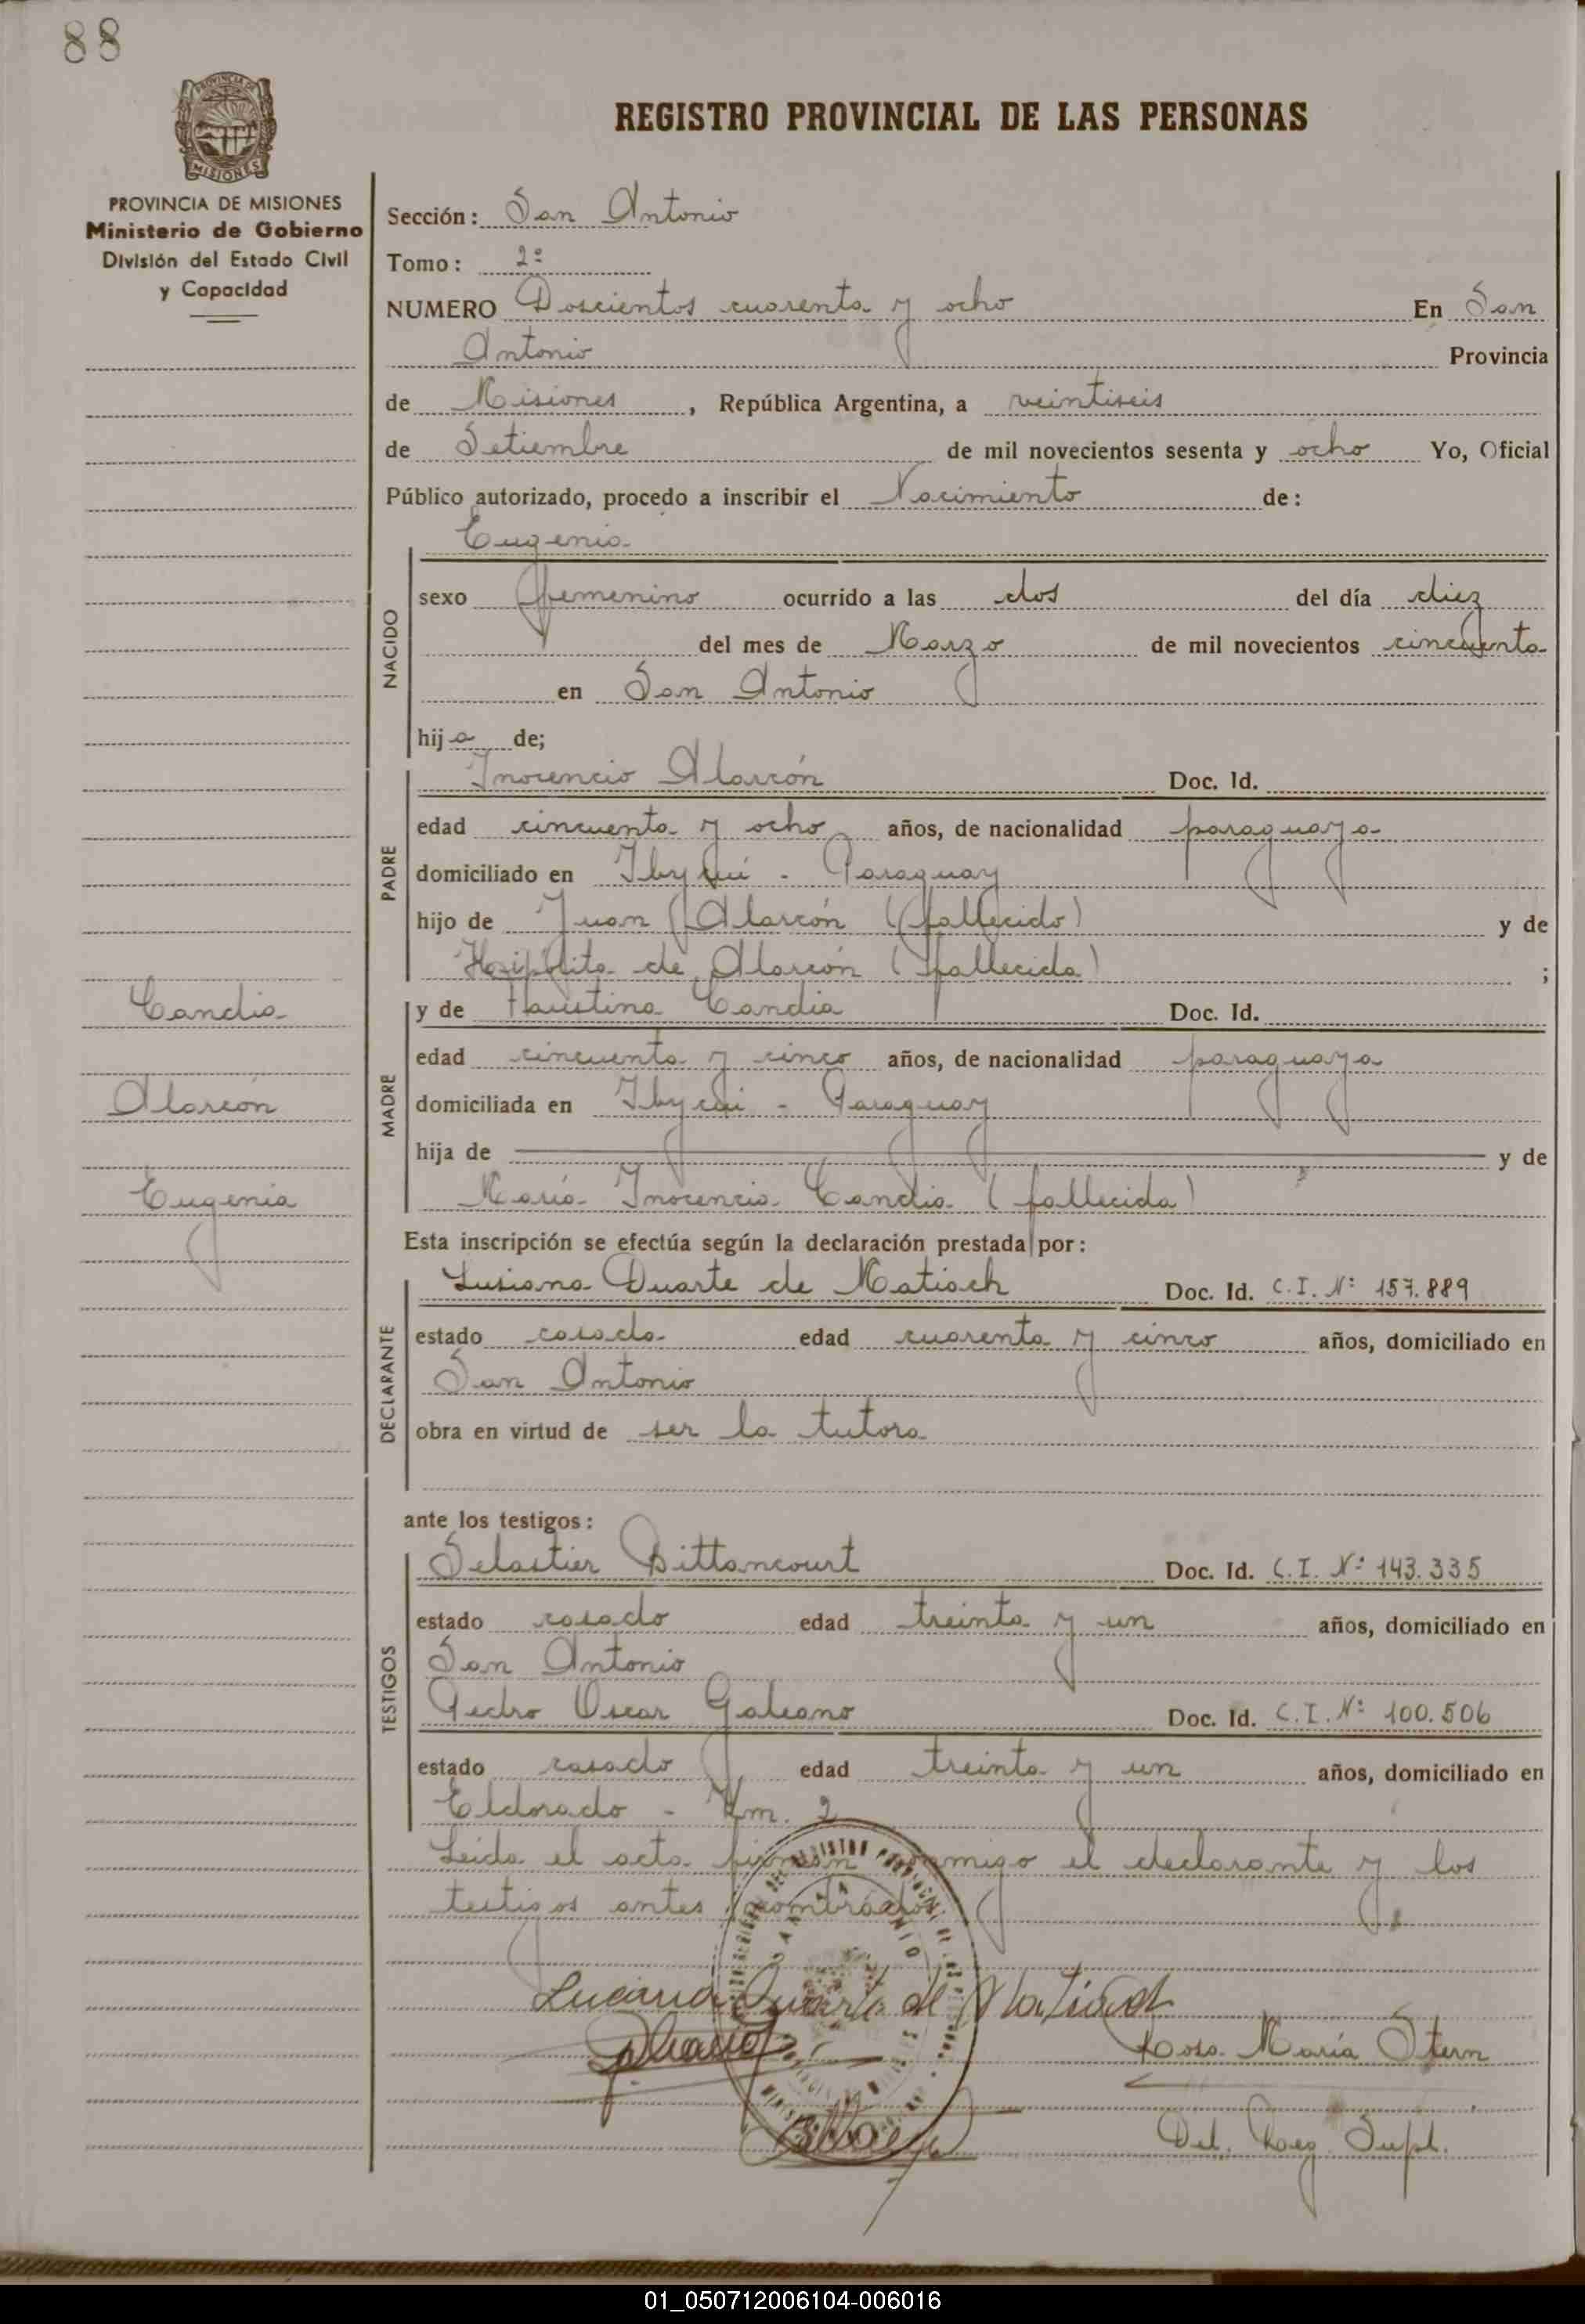 88
REGISTRO PROVINCIAL DE LAS PERSONAS
PROVINCIA DE
MISIONES
PROVINCIA DE MISIONES
Ministerio de Gobierno
División del Estado Civil
y Capacidad
Sección: San Antonio
Tomo: 2º
NUMERO Doscientos cuarenta y ocho En San
Antonio Provincia
de Misiones, República Argentina, a veintiseis
de Setiembre de mil novecientos sesenta y ocho Yo, Oficial
Público autorizado, procedo a inscribir el Nacimiento de:
Eugenia
NACIDO
sexo femenino ocurrido a las dos del día diez
del mes de Marzo de mil novecientos cincuenta
en San Antonio
hija de;
PADRE
Inocencio Alarcón Doc. Id.
edad cincuenta y ocho años, de nacionalidad paraguaya
domiciliado en Ibycuí - Paraguay
hijo de Juan Alarcón (fallecido) y de
de Alarcón (fallecida) ;
Candia
Alarcón
Eugenia
MADRE
y de Faustina Candia Doc. Id.
edad cincuenta y cinco años, de nacionalidad paraguaya
domiciliada en Ibycui - Paraguay
hija de y de
María Inocencia Candia (fallecida)
Esta inscripción se efectúa según la declaración prestada por:
DECLARANTE
Lusiana Duarte de Matiach Doc. Id. C.I. Nº 157.889
estado casada edad cuarenta y cinco años, domiciliado en
San Antonio
obra en virtud de ser la tutora
ante los testigos:
TESTIGOS
Bittancourt Doc. Id. C.I. Nº 143.335
estado casado edad treinta y un años, domiciliado en
San Antonio
Pedro Oscar Galeano Doc. Id. C.I. Nº 100.506
estado casado edad treinta y un años, domiciliado en
Eldorado - Km. 2
Leida el acta firman conmigo el declarante y los
testigos antes nombrados
Luciana Duarte de Matiach
Rosa María Stern
Del. Reg. Supl.
01_050712006104-006016